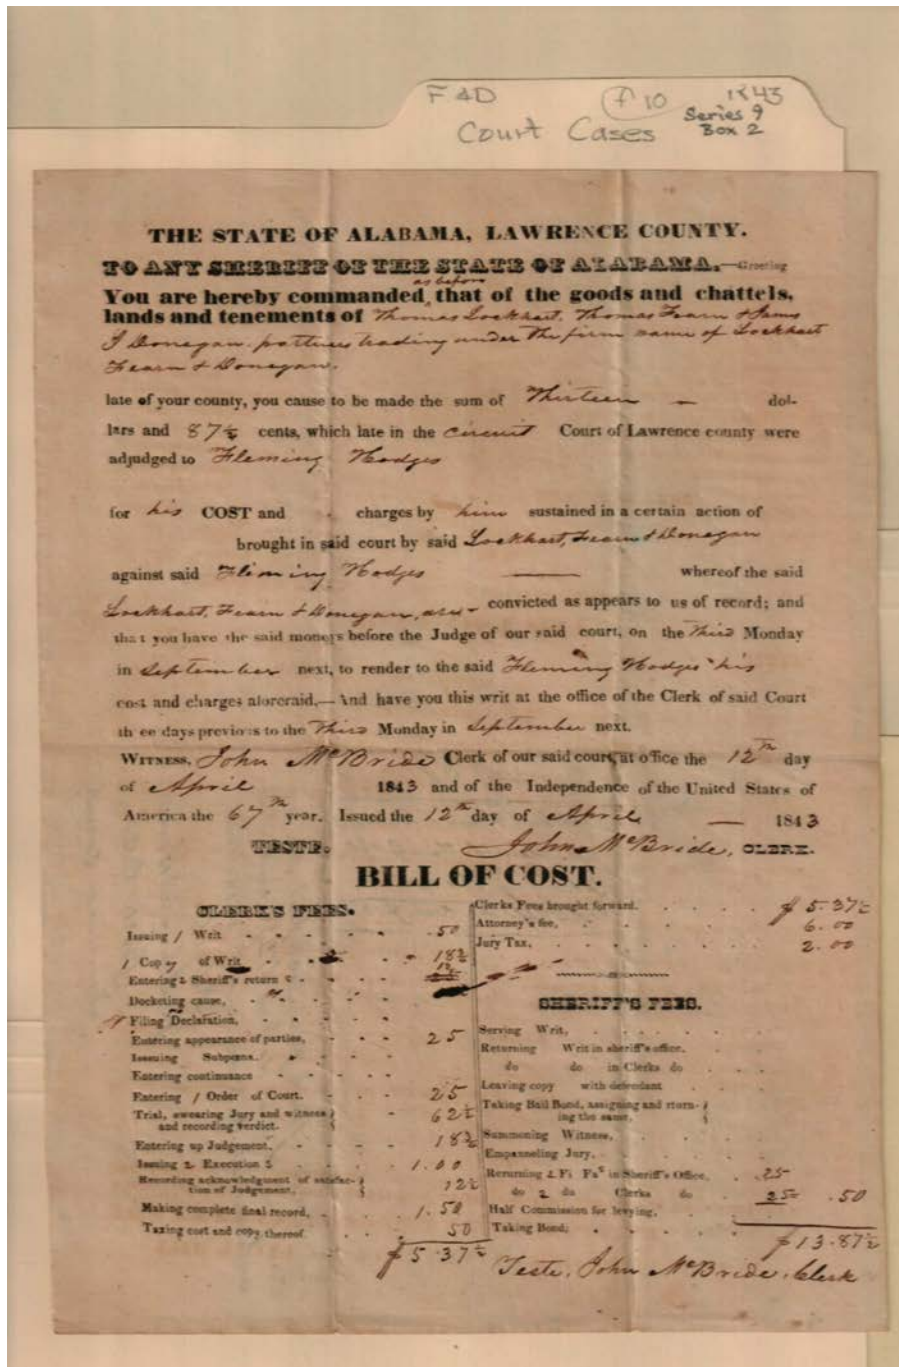 F&D f10 1843
Court Cases Series 9
Box 2
THE STATE OF ALABAMA, LAWRENCE COUNTY.
TO ANY SHERIFF OF THE STATE OF ALABAMA.—Greeting
as before
You are hereby commanded, that of the goods and chattels,
lands and tenements of Thomas Lockhart, Thomas Fearn &
J Donegan partners trading under the firm name of Lockhart
Fearn & Donegan.
late of your county, you cause to be made the sum of Thirteen — dol-
lars and 87½ cents, which late in the circuit Court of Lawrence county were
adjudged to Fleming Hodges
for his COST and charges by him sustained in a certain action of
brought in said court by said Lockhart, Fearn & Donegan
against said Fleming Hodges — whereof the said
Lockhart, Fearn & Donegan, are convicted as appears to us of record; and
that you have the said moneys before the Judge of our said court, on the Third Monday
in September next, to render to the said Fleming Hodges his
cost and charges aforesaid,—And have you this writ at the office of the Clerk of said Court
th ee days previous to the Third Monday in September next.
WITNESS, John McBride Clerk of our said court, at office the 12th day
of April 1843 and of the Independence of the United States of
America the 67th year. Issued the 12th day of April — 1843
TESTE. John McBride, CLERK.
BILL OF COST.
CLERK'S FEES.
Issuing 1 Writ 50
1 Copy of Writ 18¾
Entering 2 Sheriff's return s
Docketing cause,
Filing Declaration,
Entering appearance of parties, 25
Issuing Subpœna.
Entering continuance
Entering 1 Order of Court. 25
Trial, swearing Jury and witness 62½
and recording verdict.
Entering up Judgement. 18¾
Issuing 2 Execution s 1.00
Recording acknowledgment of satisfac- 12½
tion of Judgement,
Making complete final record, 1.50
Taxing cost and copy thereof 50
$5.37½
Clerks Fees brought forward. $5.37½
Attorney's fee, 6.00
Jury Tax, 2.00
SHERIFF'S FEES.
Serving Writ,
Returning Writ in sheriff's office.
do do in Clerks do
Leaving copy with defendant
Taking Bail Bond, assigning and return-
ing the same.
Summoning Witness,
Empanneling Jury,
Returning 2 Fi Fas in Sheriff's Office, 25
do 2 do Clerks do 25 .50
Half Commission for levying,
Taking Bond,
$13.87½
Teste, John McBride, Clerk